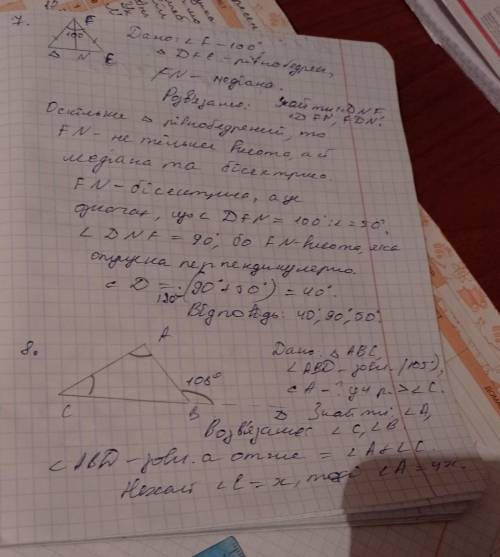 7.
F
100°
D N E
Дано: ∠F - 100°.
△ DFE - рівнобедрен,
FN - медіана.
Розв'язано: Знайти: ∠DNF,
∠DFN, FDN.
Оскільки △ рівнобедрений, то
FN - не тільки висота, а й
медіана та бісектриса.
FN - бісектриса, а це
означає, що ∠ DFN = 100°:2 = 50°.
∠ DNF = 90°, бо FN - висота, яка
опущена перпендикулярно.
∠ D = 180° - (90° + 50°) = 40°.
Відповідь: 40°, 90°, 50°.
8.
A
105°
C B D
Дано: △ ABC,
∠ABD - зовн. (105°),
∠A - ? у 4 р. > ∠C.
Знайти: ∠A,
Розв'язано: ∠C, ∠B
∠ABD - зовн. а отже = ∠A + ∠C.
Нехай ∠C = x, тоді ∠A = 4x.